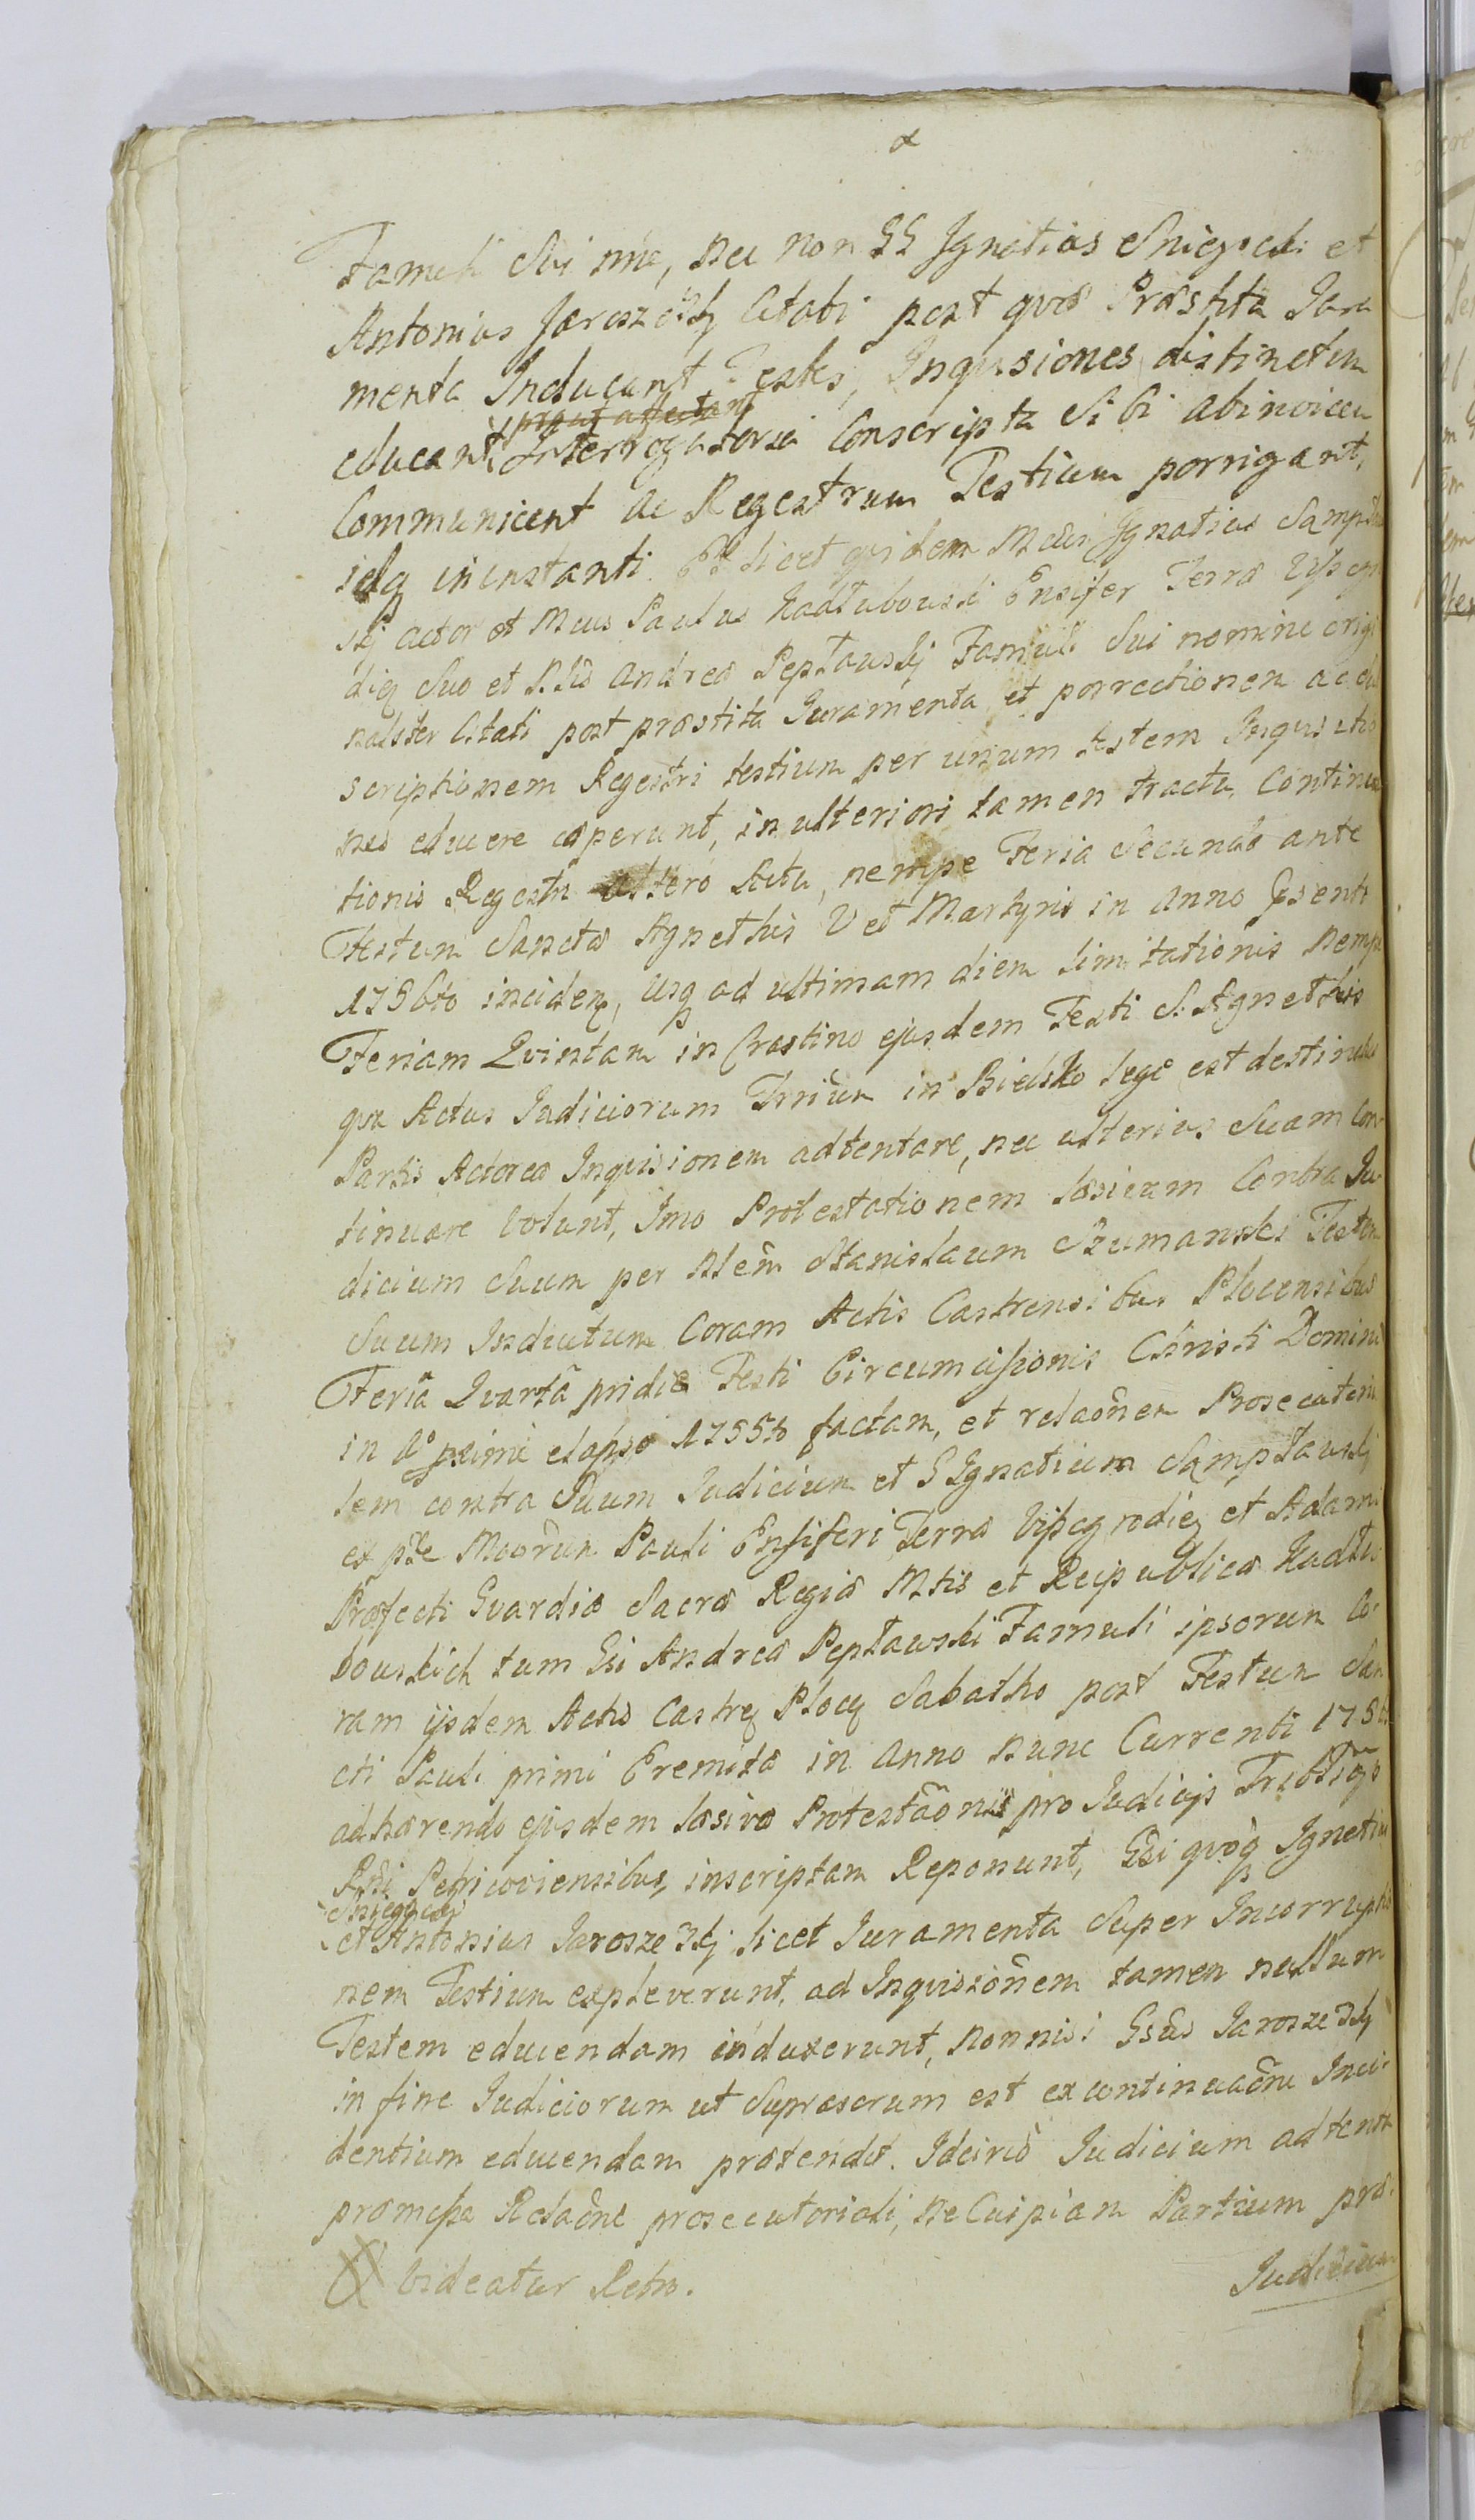 Famuli Sui nnè, nec non GG Ignatius Sniegocki et
Antonius Jaroszewskj Citati post quos Præstita Jura
menta Inducant Testes, Inquisiones distinctim
educant,
Interrogatoria Conscripta Sibi abinvicem
Communicent ac Regestrum Testium porrigant,
idq in instanti. Et licet quidem Mcus Ignatius Sampław
skj actor et Mcus Paulus Kadłubowski Ensifer Terræ Vysegr
dię Suo et Nlis Andreæ Pepławskj Famuli Sui nomine origi
naliter Citati post præstita Juramenta et porrectionem ac con
scriptionem Regestri testium per unum testem Inquisitio
nes educere cæperunt, in ulteriori tamen tractu Continua
tionis Regestri altero Actu, nempe Feria Secunda ante
Festum Sanctæ Agnethis V et Martyris in Anno Psenti
1756to inciden, usq ad ultimam diem limitationis nempe
Feriam Quintam in Crastino ejusdem Festi S. Agnethis
qua Actus Judiciorum Trrium in Bielsko lege est destinatus
Partis Actoreæ Inquisionem adtentare, nec ulterius Suam Con-
tinuare volunt, Imo Protestationem læsivam Contra Ju-
dicium Suum per Nlem Stanislaum Szumanski Testem
Suum Inductum Coram Actis Castrensibus Plocensibus
Feriâ Quartâ pridie Festi Circumcisionis Christi Domini
in Ao primi elapso 1755to factam, et relaõnem Prosecutoria
lem contra Suum Judicium et G Ignatium Sampławskj
ex pte Mcorum Pauli Ensiferi Terræ Vissegrodię et Adami
Præfecti Gvardiæ Sacræ Regiæ Mtis et Reipublicæ Kadłu
bowskich tum Gsi Andreæ Pepławski Famuli ipsorum Co-
ram ijsdem Actis Castreñ Ploceñ Sabatho post Festum San
cti Pauli primi Eremitæ in Anno nunc Currenti 1756
adhærendo ejusdem læsivæ Protestaõnis pro Judicijs Tribtibus
Rgni Petricoviensibus inscriptam Reponunt, Gsi quoq Ignatius
Sniegocki
et Antonius Jaroszewskj licet Juramenta Super Incorruptio
nem Testium expleverunt, ad Inquisiõnem tamen nullum
Testem educendam induxerunt, nonnisi Gsus Jaroszewskj
in fine Judiciorum ut Supraserum est ex continuaõne Inci-
dentium educendam prætendit. Idcircò Judicium adtenta
præmissa Relaõne prosecutoriali, ne Cuipiam Partium præ-
Judicium
videatur Retro.